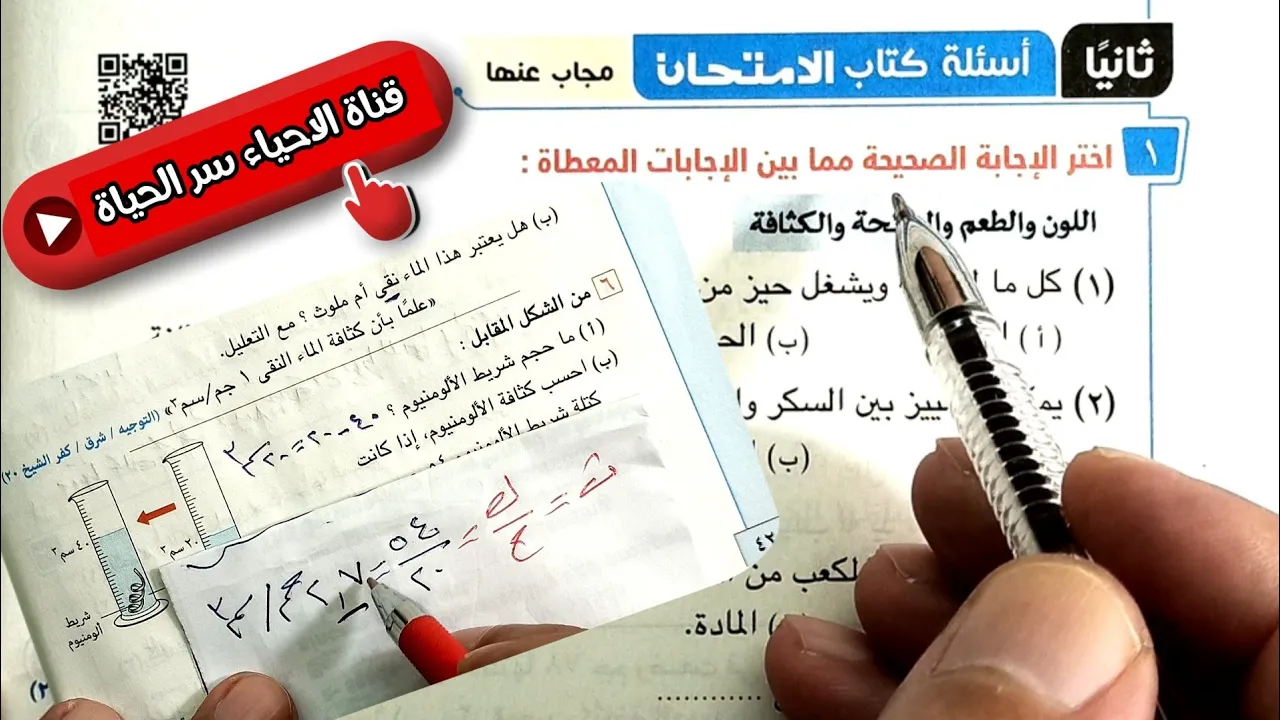 ثانيًا
أسئلة كتاب الامتحان
مجاب عنها
قناة الاحياء سر الحياة
١ اختر الإجابة الصحيحة مما بين الإجابات المعطاة :
اللون والطعم والكثافة
(١) كل ما ويشغل حيز من
(أ)
(ب)
(٢) بين السكر
(ب)
لكعب من
المادة.
(ب) هل يعتبر هذا الماء نقى أم ملوث ؟ مع التعليل.
«علمًا بأن كثافة الماء النقى ١ جم/سم٣» (التوجيه / شرق / كفر الشيخ ٢٠)
٦ من الشكل المقابل :
(أ) ما حجم شريط الألومنيوم ؟ ٤٠-٢٠=٢٠سم٣
(ب) احسب كثافة الألومنيوم، إذا كانت
كتلة شريط الألومنيوم ٥٤
ث = ك/ح = ٥٤/٢٠ = ٢٫٧ جم/سم٣
٤٠ سم٣
٢٠ سم٣
شريط
ألومنيوم
٤٢